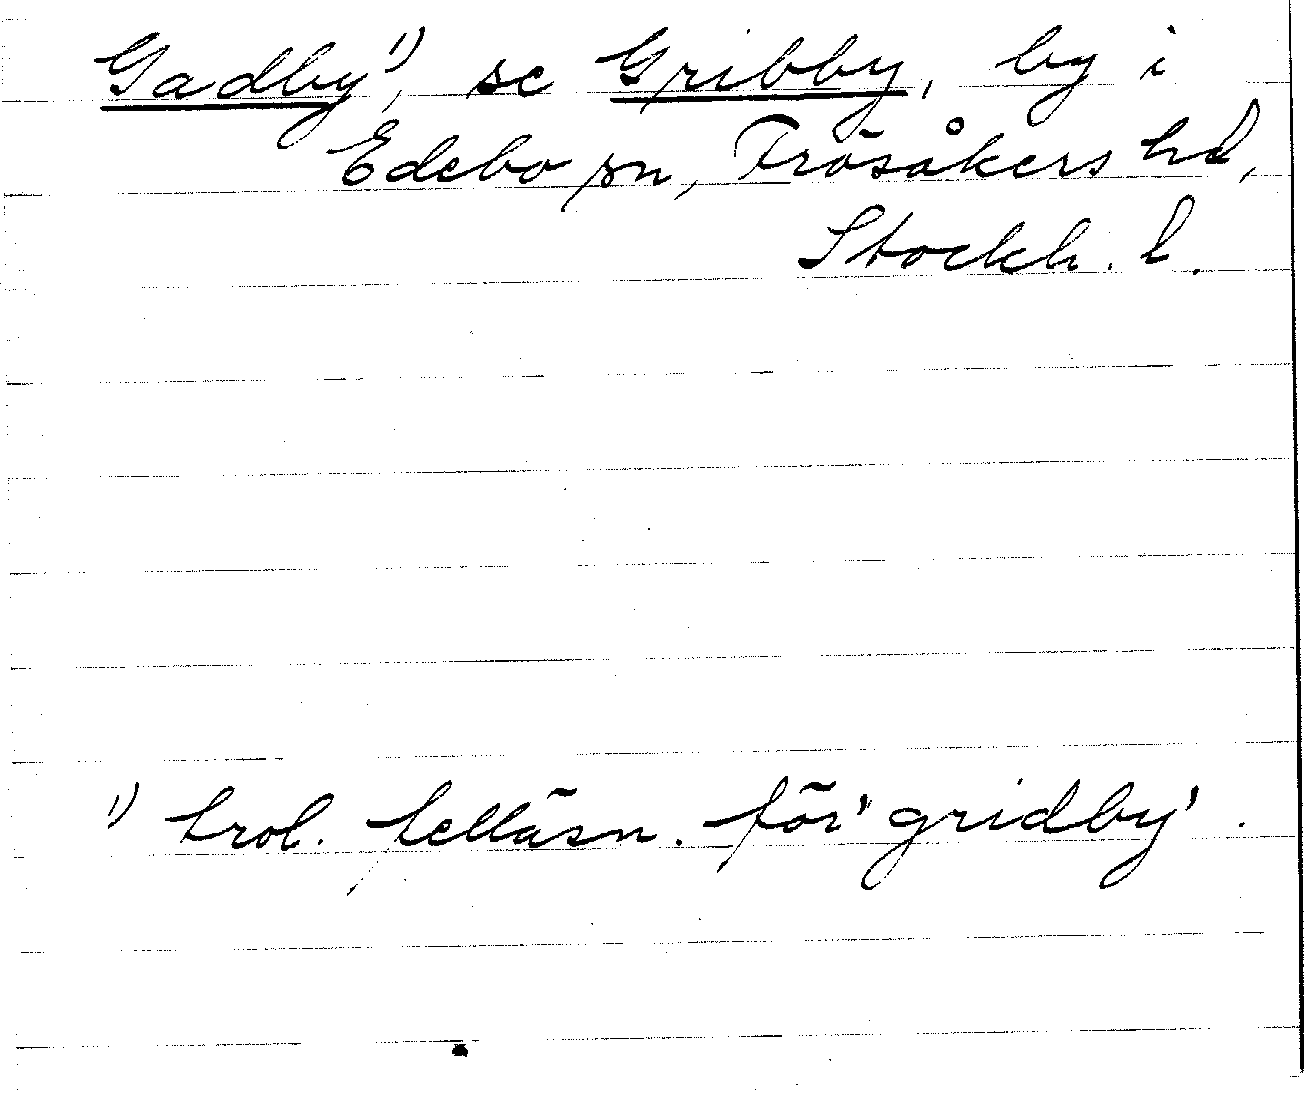 Gadby¹⁾, se Gribby, by i
Edebo sn, Frösåkers hd,
Stockh. l.
¹⁾ trol. felläsn. för 'gridby'.